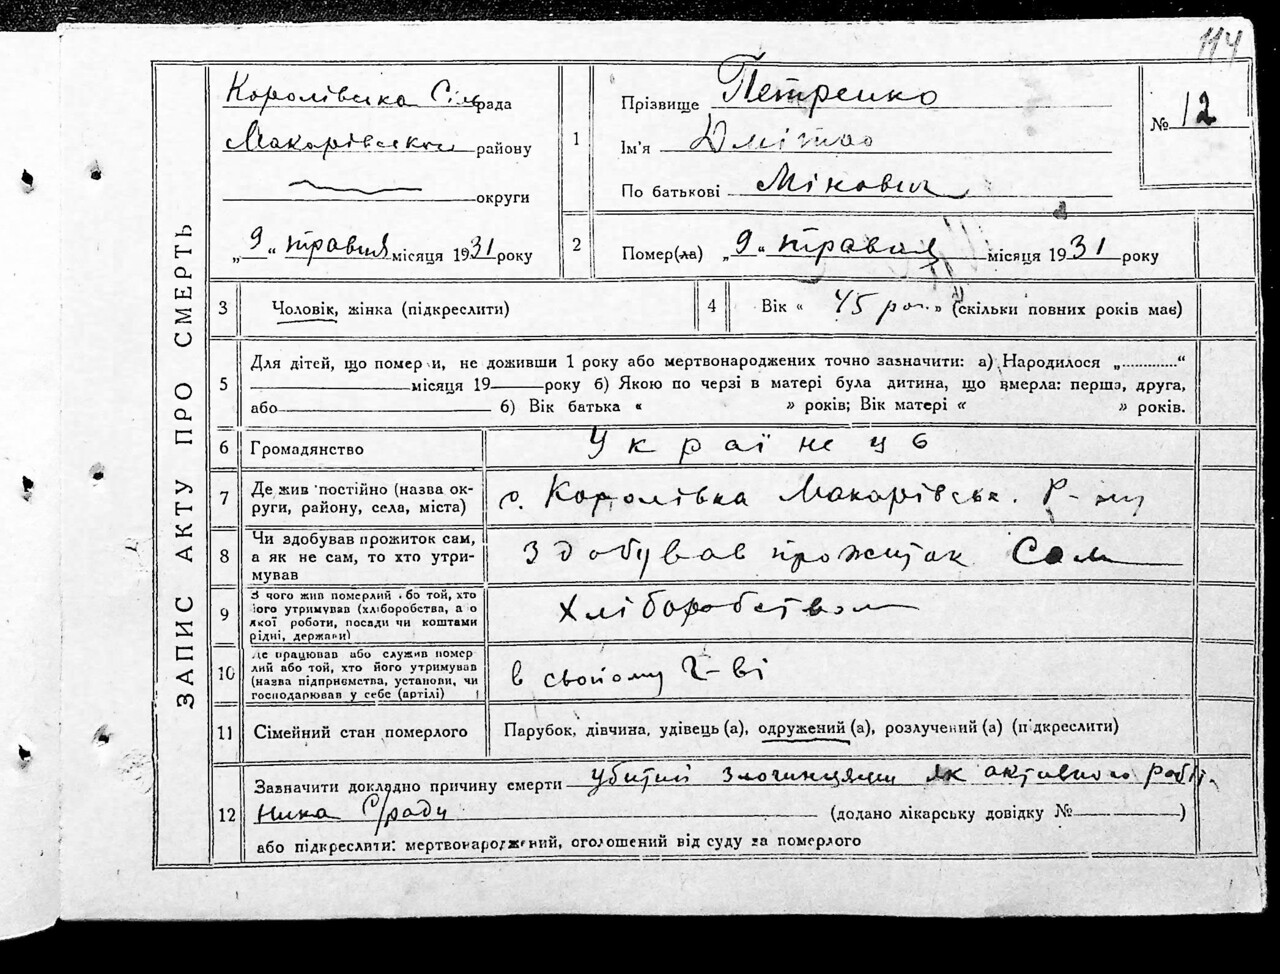 114
ЗАПИС АКТУ ПРО СМЕРТЬ
Королівська Сільрада
Макарівського району
округи
„9“ травня місяця 1931 року
1
Прізвище Петренко
Ім'я Дмітро
По батькові Мінович
№ 12
2
Помер(ла) „9“ травня місяця 1931 року
3
Чоловік, жінка (підкреслити)
4
Вік « 45 рок. » (скільки повних років має)
5
Для дітей, що померли, не доживши 1 року або мертвонароджених точно зазначити: а) Народилося „...........“
місяця 19 року б) Якою по черзі в матері була дитина, що вмерла: перша, друга,
або б) Вік батька « » років; Вік матері « » років.
6
Громадянство
Українець
7
Де жив постійно (назва ок-
руги, району, села, міста)
с. Королівка Макарівськ. Р-ну
8
Чи здобував прожиток сам,
а як не сам, то хто утри-
мував
Здобував прожиток Сам
9
З чого жив померлий або той, хто
його утримував (хліборобства, а о
якої роботи, посади чи коштами
рідні, держави)
Хліборобством
10
Де працював або служив помер
лий або той, хто його утримував
(назва підприємства, установи, чи
господарював у себе (артілі)
в свойому г-ві
11
Сімейний стан померлого
Парубок, дівчина, удівець (а), одружений (а), розлучений (а) (підкреслити)
12
Зазначити докладно причину смерти убитий злочинцями як активного робіт-
ника С/ради (додано лікарську довідку № )
або підкреслити: мертвонароджений, оголошений від суду за померлого